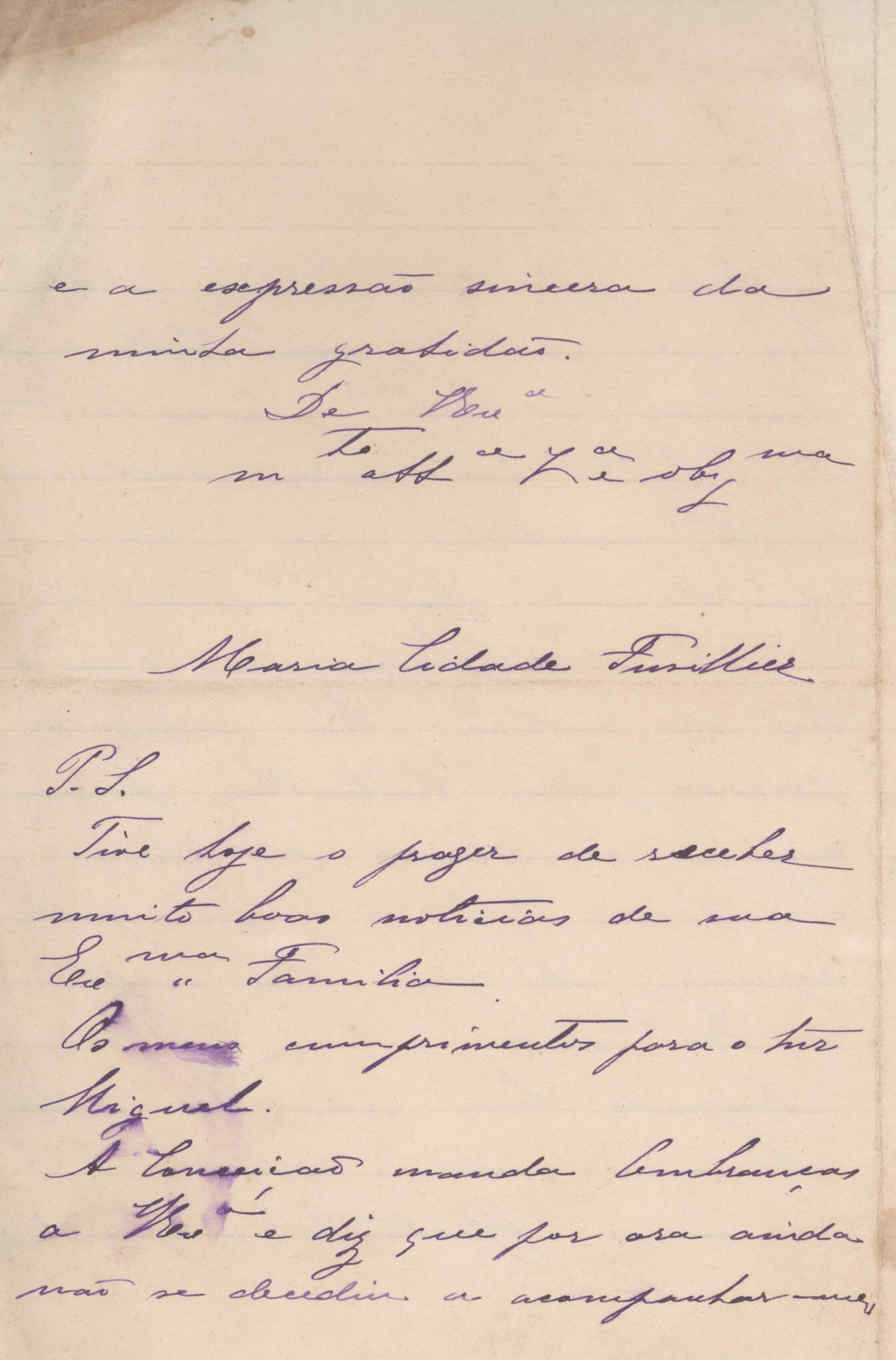 e a expressão sincera da
minha gratidão.
De VExcia
mto atta Va e obgma
Maria Cidade Fusillier
P. S.
Tive hoje o prazer de receber
muito boas noticias de sua
Excma Familia
Os meus cumprimentos para o
Miguel.
A Conceicão manda lembranças
a VExa e diz que por ora ainda
não se decediu a acompanhar-me,